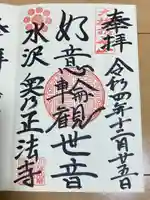 奉拝
令和四年十二月廿五日
如意輪観世音
水沢
正法寺